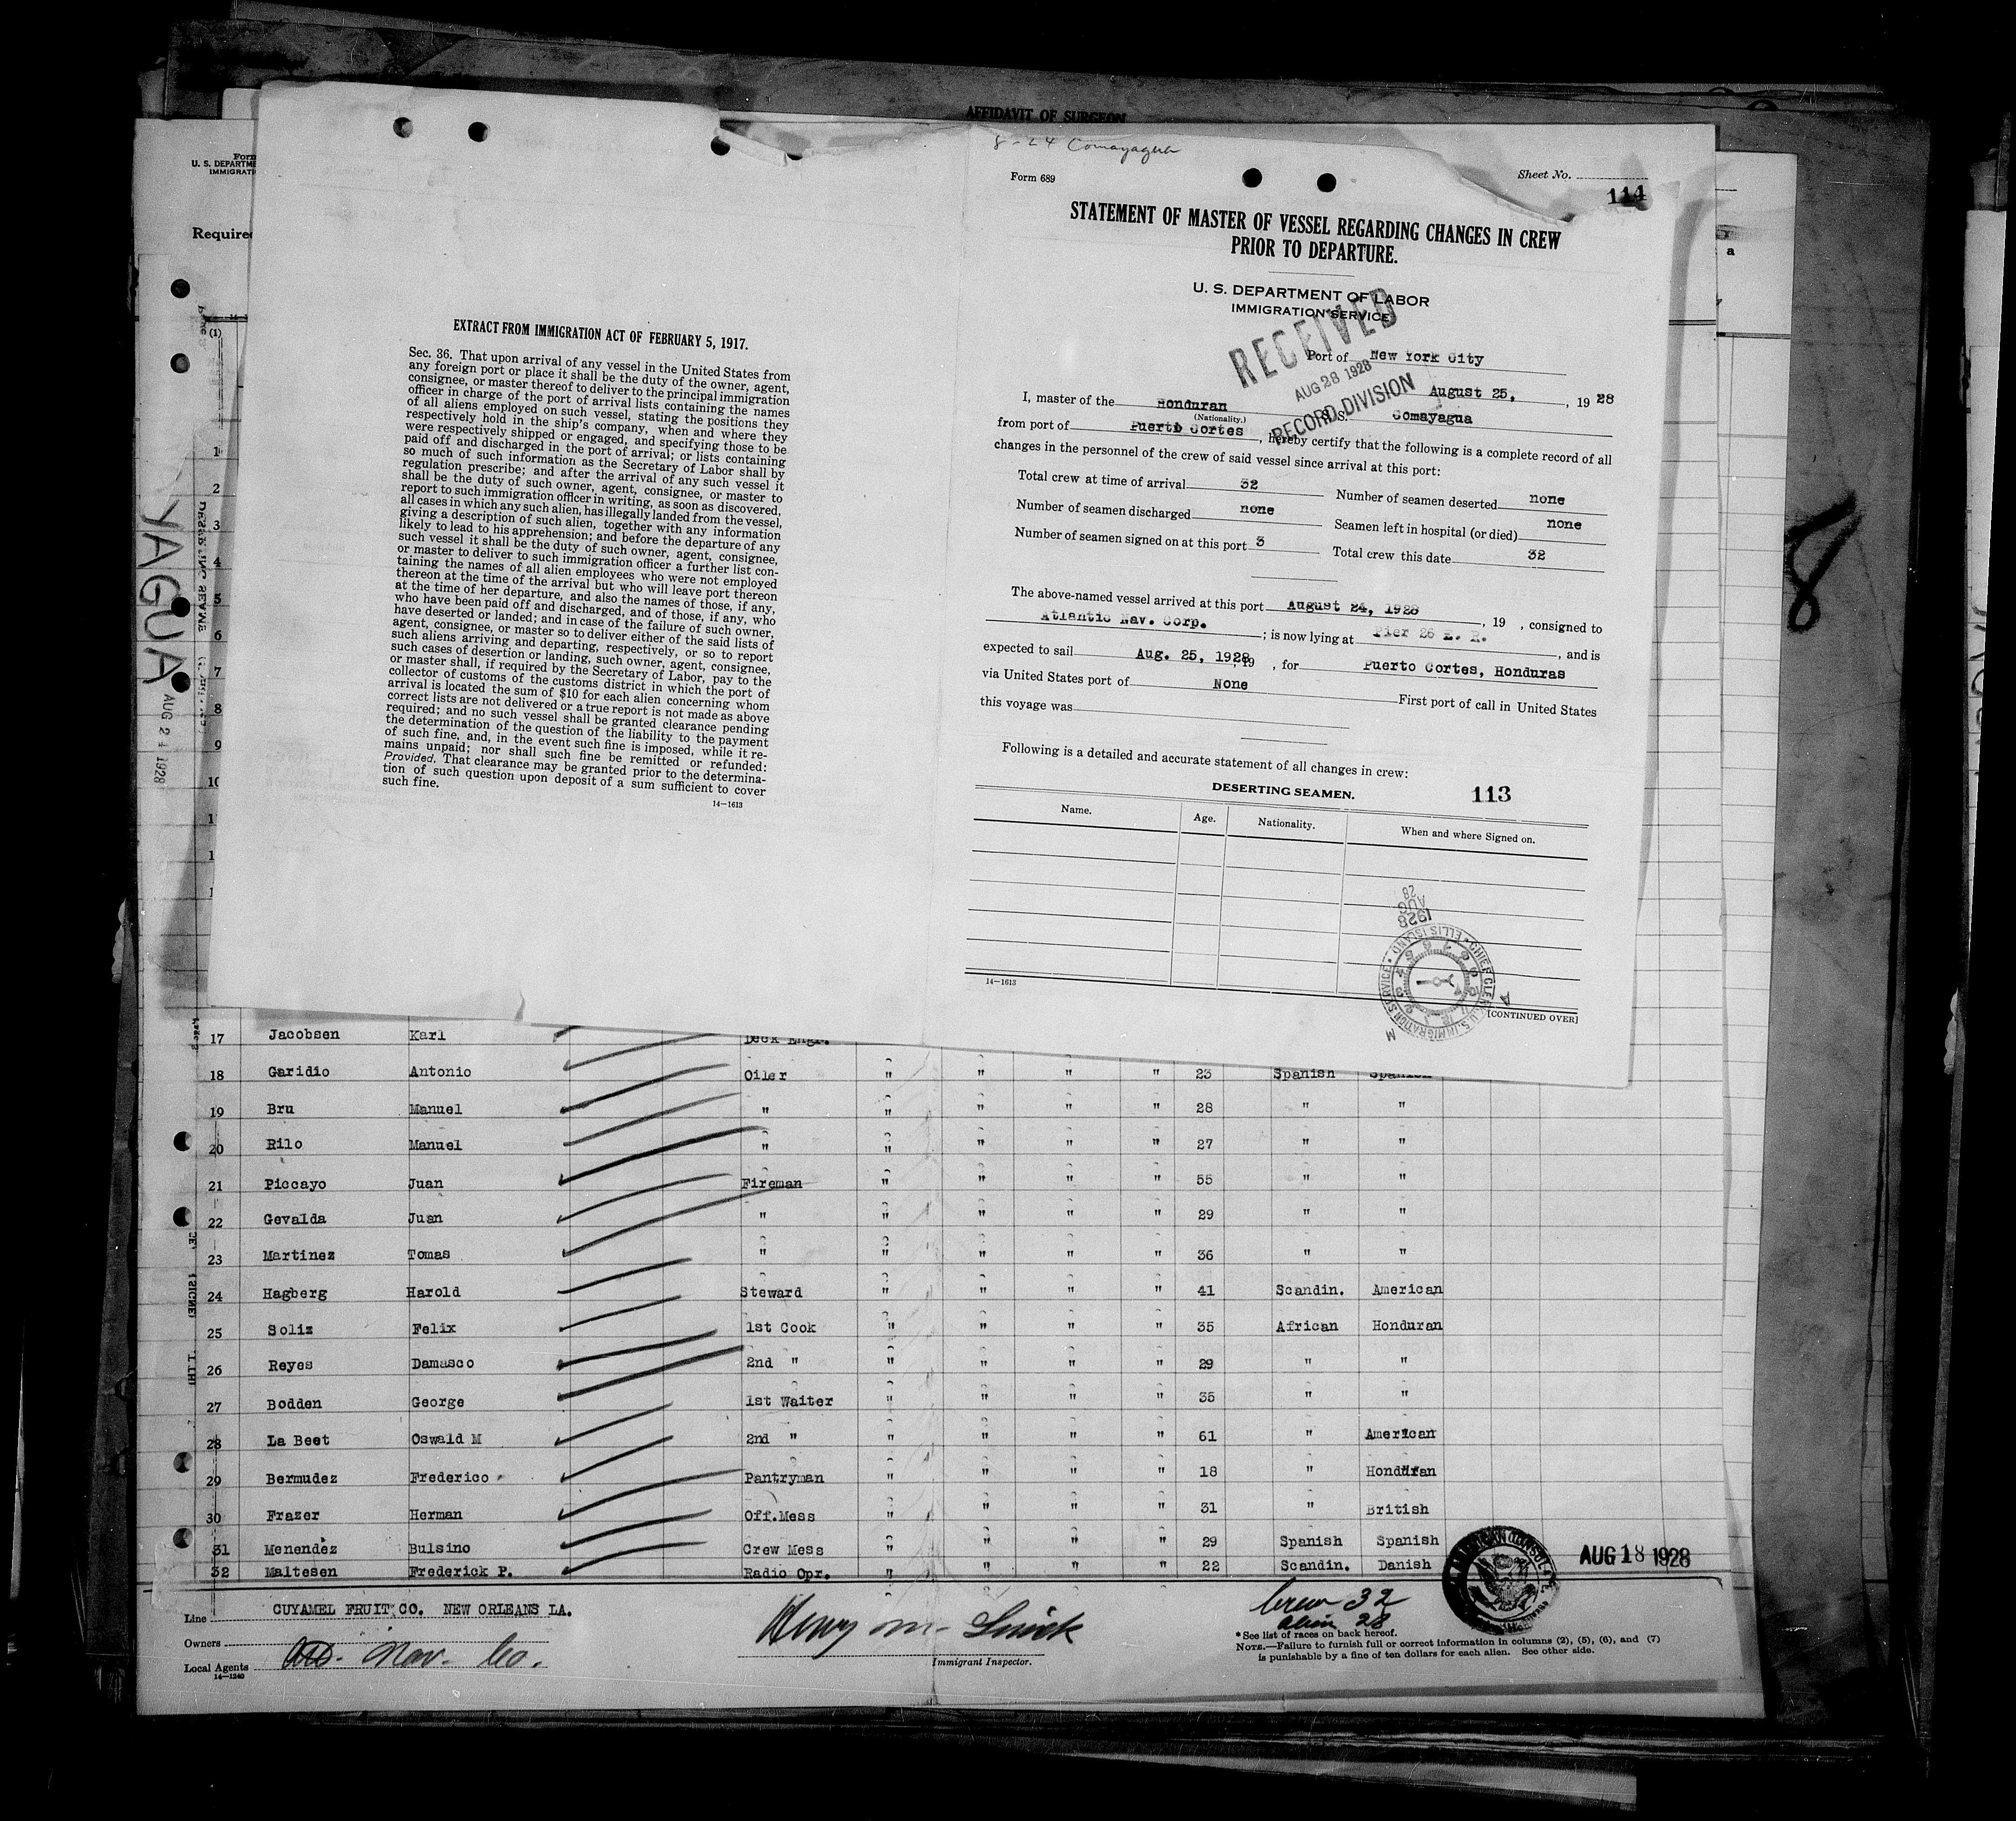 AFFIDAVIT OF SURGEON
Form
U. S. DEPARTME
IMMIGRATI
Require
(1)
YAGUA
AUG 24 1928
EXTRACT FROM IMMIGRATION ACT OF FEBRUARY 5, 1917.
Sec. 36. That upon arrival of any vessel in the United States from
any foreign port or place it shall be the duty of the owner, agent,
consignee, or master thereof to deliver to the principal immigration
officer in charge of the port of arrival lists containing the names
of all aliens employed on such vessel, stating the positions they
respectively hold in the ship's company, when and where they
were respectively shipped or engaged, and specifying those to be
paid off and discharged in the port of arrival; or lists containing
so much of such information as the Secretary of Labor shall by
regulation prescribe; and after the arrival of any such vessel it
shall be the duty of such owner, agent, consignee, or master to
report to such immigration officer in writing, as soon as discovered,
all cases in which any such alien, has illegally landed from the vessel,
giving a description of such alien, together with any information
likely to lead to his apprehension; and before the departure of any
such vessel it shall be the duty of such owner, agent, consignee,
or master to deliver to such immigration officer a further list con-
taining the names of all alien employees who were not employed
thereon at the time of the arrival but who will leave port thereon
at the time of her departure, and also the names of those, if any,
who have been paid off and discharged, and of those, if any, who
have deserted or landed; and in case of the failure of such owner,
agent, consignee, or master so to deliver either of the said lists of
such aliens arriving and departing, respectively, or so to report
such cases of desertion or landing, such owner, agent, consignee,
or master shall, if required by the Secretary of Labor, pay to the
collector of customs of the customs district in which the port of
arrival is located the sum of $10 for each alien concerning whom
correct lists are not delivered or a true report is not made as above
required; and no such vessel shall be granted clearance pending
the determination of the question of the liability to the payment
of such fine, and, in the event such fine is imposed, while it re-
mains unpaid; nor shall such fine be remitted or refunded:
Provided, That clearance may be granted prior to the determina-
tion of such question upon deposit of a sum sufficient to cover
such fine.
14—1613
8-24 Comayagua
Form 689
Sheet No.
114
STATEMENT OF MASTER OF VESSEL REGARDING CHANGES IN CREW
PRIOR TO DEPARTURE.
U. S. DEPARTMENT OF LABOR
IMMIGRATION SERVICE
RECEIVED
AUG 28 1928
RECORD DIVISION
Port of New York City
August 25, , 1928
I, master of the Honduran S.S. Comayagua
(Nationality.)
from port of Puerto Cortes , hereby certify that the following is a complete record of all
changes in the personnel of the crew of said vessel since arrival at this port:
Total crew at time of arrival 32 Number of seamen deserted none
Number of seamen discharged none Seamen left in hospital (or died) none
Number of seamen signed on at this port 3 Total crew this date 32
The above-named vessel arrived at this port August 24, 1928 , 19 , consigned to
Atlantic Nav. Corp. ; is now lying at Pier 26 E. R. , and is
expected to sail Aug. 25, 1928 , 19 , for Puerto Cortes, Honduras
via United States port of None First port of call in United States
this voyage was
Following is a detailed and accurate statement of all changes in crew:
DESERTING SEAMEN. 113
Name. Age. Nationality. When and where Signed on.
1928
AUG
28
CHIEF CLERK U.S. IMMIGRATION SERVICE ELLIS ISLAND
14—1613
[CONTINUED OVER]
8
17 Jacobsen Karl Deck Engr.
18 Garidio Antonio Oiler " " " " 23 Spanish Spanish
19 Bru Manuel " " " " " 28 " "
20 Rilo Manuel " " " " " 27 " "
21 Piccayo Juan Fireman " " " " 55 " "
22 Gevalda Juan " " " " " 29 " "
23 Martinez Tomas " " " " " 36 " "
24 Hagberg Harold Steward " " " " 41 Scandin. American
25 Soliz Felix 1st Cook " " " " 35 African Honduran
26 Reyes Damasco 2nd " " " " " 29 " "
27 Bodden George 1st Waiter " " " " 35 " "
28 La Beet Oswald M 2nd " " " " " 61 " American
29 Bermudez Frederico Pantryman " " " " 18 " Honduran
30 Frazer Herman Off.Mess " " " " 31 " British
31 Menendez Bulsino Crew Mess " " " " 29 Spanish Spanish
32 Maltesen Frederick P. Radio Opr. " " " " 22 Scandin. Danish
AUG 18 1928
Line CUYAMEL FRUIT CO. NEW ORLEANS LA.
Owners
Local Agents Atl. Nav. Co.
14—1240
Henry M.
Immigrant Inspector.
Crew 32
Alien 28
*See list of races on back hereof.
NOTE.—Failure to furnish full or correct information in columns (2), (5), (6), and (7)
is punishable by a fine of ten dollars for each alien. See other side.